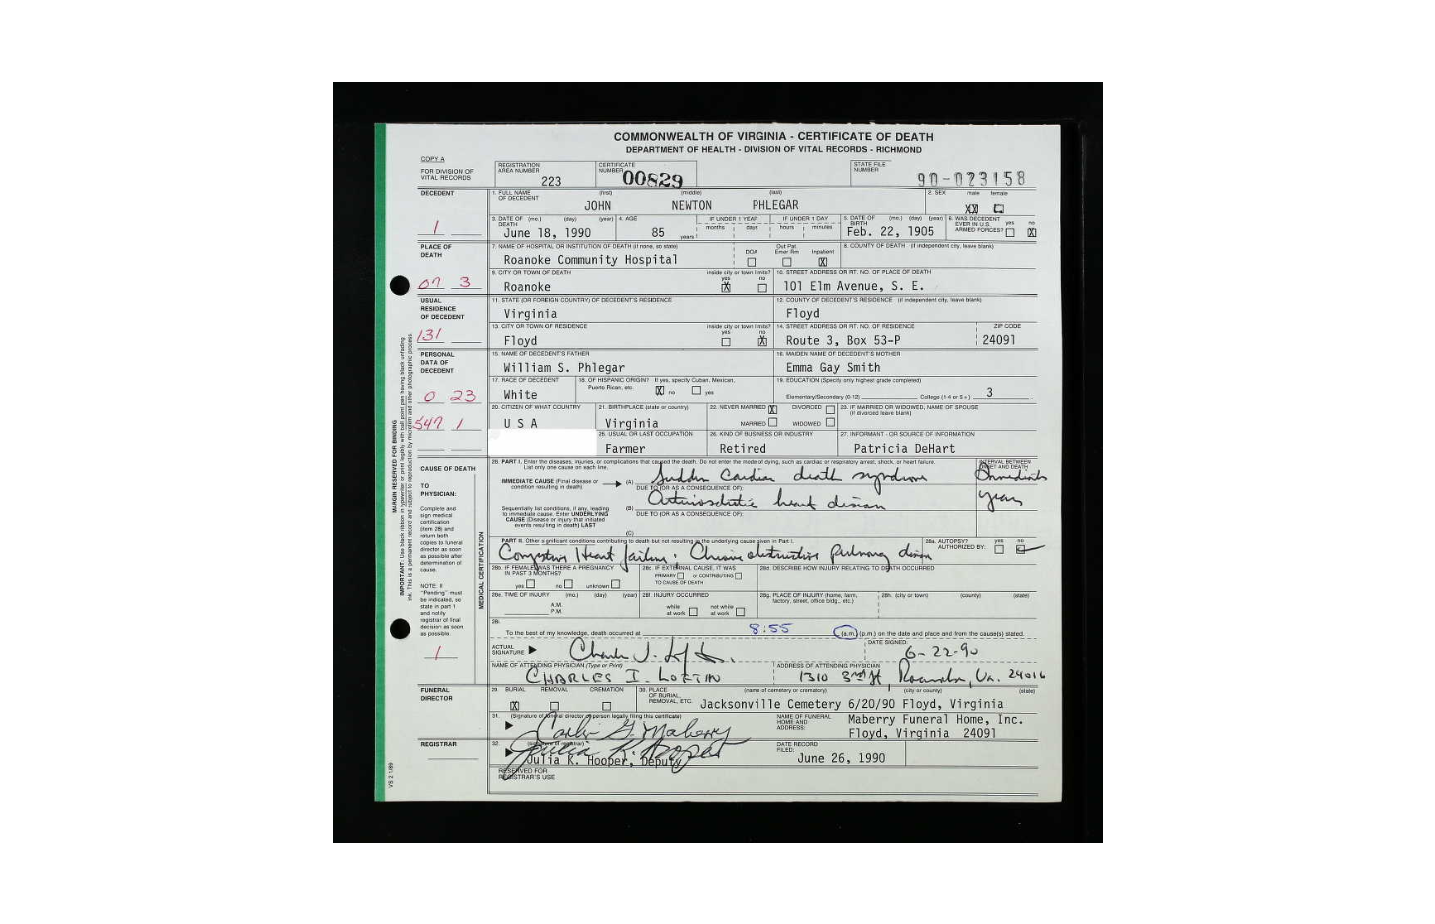 COMMONWEALTH OF VIRGINIA - CERTIFICATE OF DEATH
DEPARTMENT OF HEALTH - DIVISION OF VITAL RECORDS - RICHMOND
COPY A
FOR DIVISION OF VITAL RECORDS
REGISTRATION AREA NUMBER 223
CERTIFICATE NUMBER 00829
STATE FILE NUMBER 90-023158
DECEDENT
1. FULL NAME OF DECEDENT (first) (middle) (last)
JOHN NEWTON PHLEGAR
2. SEX male female
XX
3. DATE OF DEATH (mo.) (day) (year) 4. AGE IF UNDER 1 YEAR months days IF UNDER 1 DAY hours minutes 5. DATE OF BIRTH (mo.) (day) (year) 6. WAS DECEDENT EVER IN U.S. ARMED FORCES? yes no
1 June 18, 1990 85 years Feb. 22, 1905 X
PLACE OF DEATH
7. NAME OF HOSPITAL OR INSTITUTION OF DEATH (if none, so state) DOA Out Pat. Emer Rm Inpatient 8. COUNTY OF DEATH (if independent city, leave blank)
Roanoke Community Hospital X
9. CITY OR TOWN OF DEATH inside city or town limits? yes no 10. STREET ADDRESS OR RT. NO. OF PLACE OF DEATH
07 3 Roanoke X 101 Elm Avenue, S. E.
USUAL RESIDENCE OF DECEDENT
11. STATE (OR FOREIGN COUNTRY) OF DECEDENT'S RESIDENCE 12. COUNTY OF DECEDENT'S RESIDENCE (if independent city, leave blank)
Virginia Floyd
13. CITY OR TOWN OF RESIDENCE inside city or town limits? yes no 14. STREET ADDRESS OR RT. NO. OF RESIDENCE ZIP CODE
131 Floyd X Route 3, Box 53-P 24091
PERSONAL DATA OF DECEDENT
15. NAME OF DECEDENT'S FATHER 16. MAIDEN NAME OF DECEDENT'S MOTHER
William S. Phlegar Emma Gay Smith
17. RACE OF DECEDENT 18. OF HISPANIC ORIGIN? If yes, specify Cuban, Mexican, Puerto Rican, etc. X no yes 19. EDUCATION (Specify only highest grade completed)
0 23 White Elementary/Secondary (0-12) College (1-4 or 5+) 3
20. CITIZEN OF WHAT COUNTRY 21. BIRTHPLACE (state or country) 22. NEVER MARRIED X DIVORCED MARRIED WIDOWED 23. IF MARRIED OR WIDOWED, NAME OF SPOUSE (if divorced leave blank)
547 1 U S A Virginia
25. USUAL OR LAST OCCUPATION 26. KIND OF BUSINESS OR INDUSTRY 27. INFORMANT - OR SOURCE OF INFORMATION
Farmer Retired Patricia DeHart
CAUSE OF DEATH
TO PHYSICIAN:
Complete and sign medical certification (item 28) and return both copies to funeral director as soon as possible after determination of cause.
NOTE: If "Pending" must be indicated, so state in part 1 and notify registrar of final decision as soon as possible.
1
MEDICAL CERTIFICATION
28. PART I. Enter the diseases, injuries, or complications that caused the death. Do not enter the mode of dying, such as cardiac or respiratory arrest, shock, or heart failure. List only one cause on each line.
INTERVAL BETWEEN ONSET AND DEATH
IMMEDIATE CAUSE (Final disease or condition resulting in death) (A) Sudden Cardiac death syndrome Immediate
DUE TO (OR AS A CONSEQUENCE OF):
(B) Arteriosclerotic heart disease years
Sequentially list conditions, if any, leading to immediate cause. Enter UNDERLYING CAUSE (Disease or injury that initiated events resulting in death) LAST
DUE TO (OR AS A CONSEQUENCE OF):
(C)
PART II. Other significant conditions contributing to death but not resulting in the underlying cause given in Part I. 28a. AUTOPSY? AUTHORIZED BY: yes no
Congestive Heart failure, Chronic obstructive pulmonary disease
28b. IF FEMALE, WAS THERE A PREGNANCY IN PAST 3 MONTHS? yes no unknown
28c. IF EXTERNAL CAUSE, IT WAS PRIMARY or CONTRIBUTING TO CAUSE OF DEATH
28d. DESCRIBE HOW INJURY RELATING TO DEATH OCCURRED
28e. TIME OF INJURY (mo.) (day) (year) A.M. P.M.
28f. INJURY OCCURRED while at work not while at work
28g. PLACE OF INJURY (home, farm, factory, street, office bldg., etc.)
28h. (city or town) (county) (state)
28i. To the best of my knowledge, death occurred at 8:55 (a.m.) (p.m.) on the date and place and from the cause(s) stated.
ACTUAL SIGNATURE DATE SIGNED: 6-22-90
NAME OF ATTENDING PHYSICIAN (Type or Print) ADDRESS OF ATTENDING PHYSICIAN
CHARLES I. LOFTIN 1310 3rd St, Roanoke, Va. 24016
FUNERAL DIRECTOR
29. BURIAL REMOVAL CREMATION 30. PLACE OF BURIAL, REMOVAL, ETC. (name of cemetery or crematory) (city or county) (state)
X Jacksonville Cemetery 6/20/90 Floyd, Virginia
31. (Signature of funeral director or person legally filing this certificate) NAME OF FUNERAL HOME AND ADDRESS: Maberry Funeral Home, Inc.
Floyd, Virginia 24091
REGISTRAR
32. (signature of registrar) DATE RECORD FILED:
Julia K. Hooper, Deputy June 26, 1990
RESERVED FOR REGISTRAR'S USE
VS 2 1/89
MARGIN RESERVED FOR BINDING